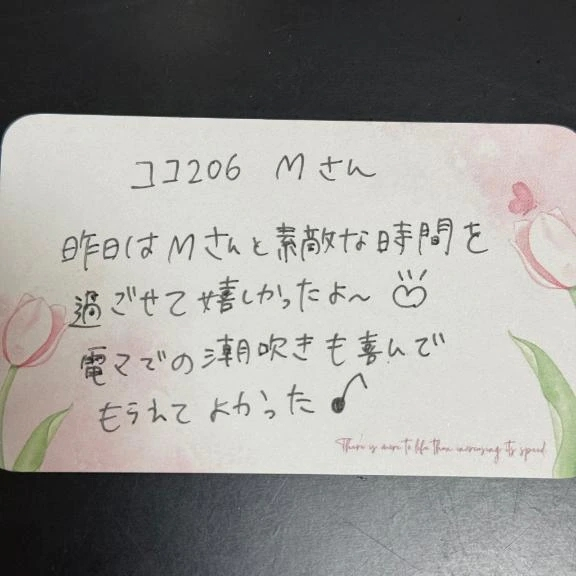 ココ206 Mさん
昨日はMさんと素敵な時間を
過ごせて嬉しかったよ〜♡
電マでの潮吹きも喜んで
もらえてよかった♪
There is more to life than increasing its speed.